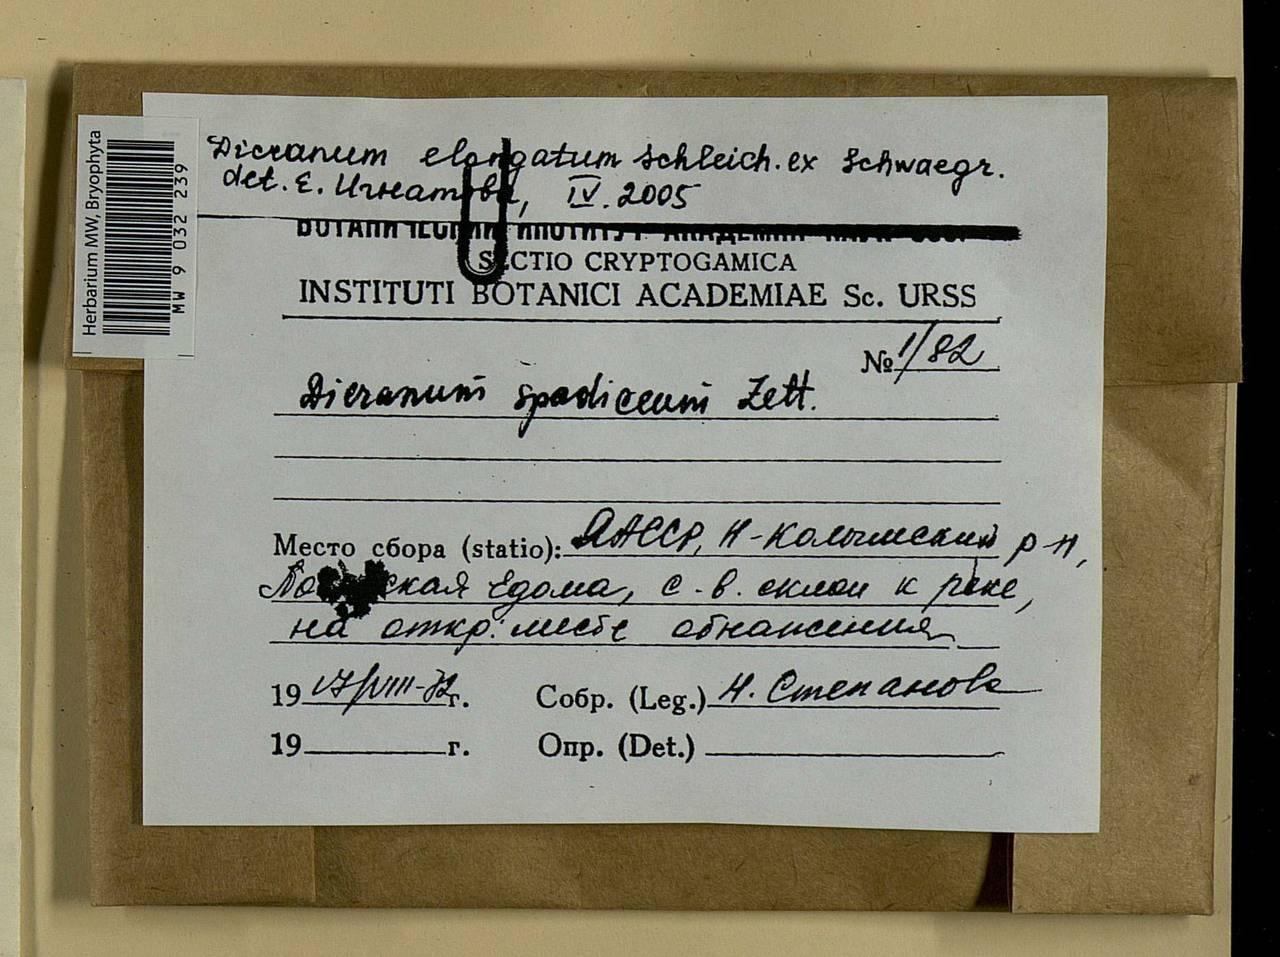 Herbarium MW, Bryophyta
MW 9 032 239
Dicranum elongatum Schleich. ex Schwaegr.
det. Е. Игнатова, IV. 2005
БОТАНИЧЕСКИЙ ИНСТИТУТ АКАДЕМИИ НАУК СССР
SECTIO CRYPTOGAMICA
INSTITUTI BOTANICI ACADEMIAE Sc. URSS
№ 1/82
Dicranum spadiceum Zett.
Место сбора (statio): ЯАССР, Н-Колымский р-н,
Едома, с.-в. склон к реке,
на откр. месте обнажения
19 17/VIII-72 г. Собр. (Leg.) Н. Степанова
19 г. Опр. (Det.)